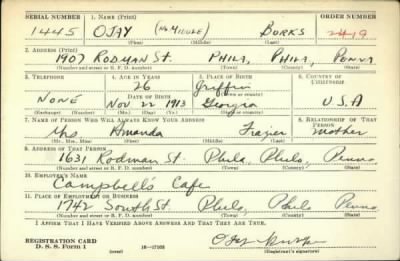 SERIAL NUMBER 1. NAME (Print) ORDER NUMBER
1445 OJAY (No Middle) BORKS 2419
(First) (Middle) (Last)
2. ADDRESS (Print)
1907 RODMAN ST. PHILA, PHILA, PENNA
(Number and street or R. F. D. number) (Town) (County) (State)
3. TELEPHONE 4. AGE IN YEARS 5. PLACE OF BIRTH 6. COUNTRY OF CITIZENSHIP
26 Griffin
DATE OF BIRTH
NONE Nov 22 1913 Georgia U.S.A
(Exchange) (Number) (Mo.) (Day) (Yr.) (State or country)
7. NAME OF PERSON WHO WILL ALWAYS KNOW YOUR ADDRESS 8. RELATIONSHIP OF THAT PERSON
Mrs Amanda Frazier Mother
(Mr., Mrs., Miss) (First) (Middle) (Last)
9. ADDRESS OF THAT PERSON
1631 Rodman St. Phila, Phila, Penna
(Number and street or R. F. D. number) (Town) (County) (State)
10. EMPLOYER'S NAME
Campbell's Cafe
11. PLACE OF EMPLOYMENT OR BUSINESS
1742 South St. Phila, Phila Penna
(Number and street or R. F. D. number) (Town) (County) (State)
I AFFIRM THAT I HAVE VERIFIED ABOVE ANSWERS AND THAT THEY ARE TRUE.
REGISTRATION CARD
D. S. S. Form 1 (over) 16—17105